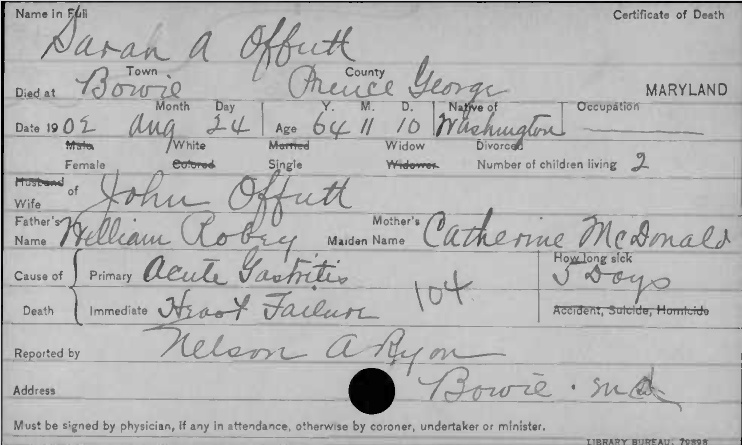 Name in Full Certificate of Death
Sarah A Offutt
Town County
Died at Bowie Prince George MARYLAND
Month Day Y. M. D. Native of Occupation
Date 1902 Aug 24 Age 64 11 10 Washington
Male White Married Widow Divorced
Female Colored Single Widower Number of children living 2
Husband of
Wife John Offutt
Father's Mother's
Name William Robey Maiden Name Catherine McDonald
How long sick
Cause of Primary Acute Gastritis 5 Days
Death Immediate Heart Failure 104 Accident, Suicide, Homicide
Reported by Nelson A Ryon
Address Bowie. Md
Must be signed by physician, if any in attendance, otherwise by coroner, undertaker or minister.
LIBRARY BUREAU, 79898